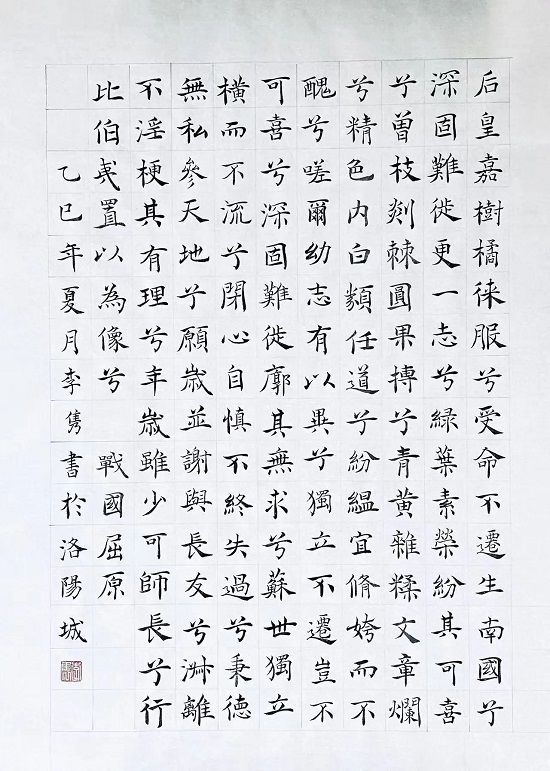 后皇嘉樹橘徠服兮受命不遷生南國兮
深固難徙更一志兮緑葉素榮紛其可喜
兮曾枝剡棘圓果摶兮青黃雜糅文章爛
兮精色内白類任道兮紛緼宜脩姱而不
醜兮嗟爾幼志有以異兮獨立不遷豈不
可喜兮深固難徙廓其無求兮蘇世獨立
橫而不流兮閉心自慎不終失過兮秉德
無私參天地兮願歲並謝與長友兮淑離
不淫梗其有理兮年歲雖少可師長兮行
比伯夷置以為像兮 戰國屈原
乙巳年夏月李雋書於洛陽城